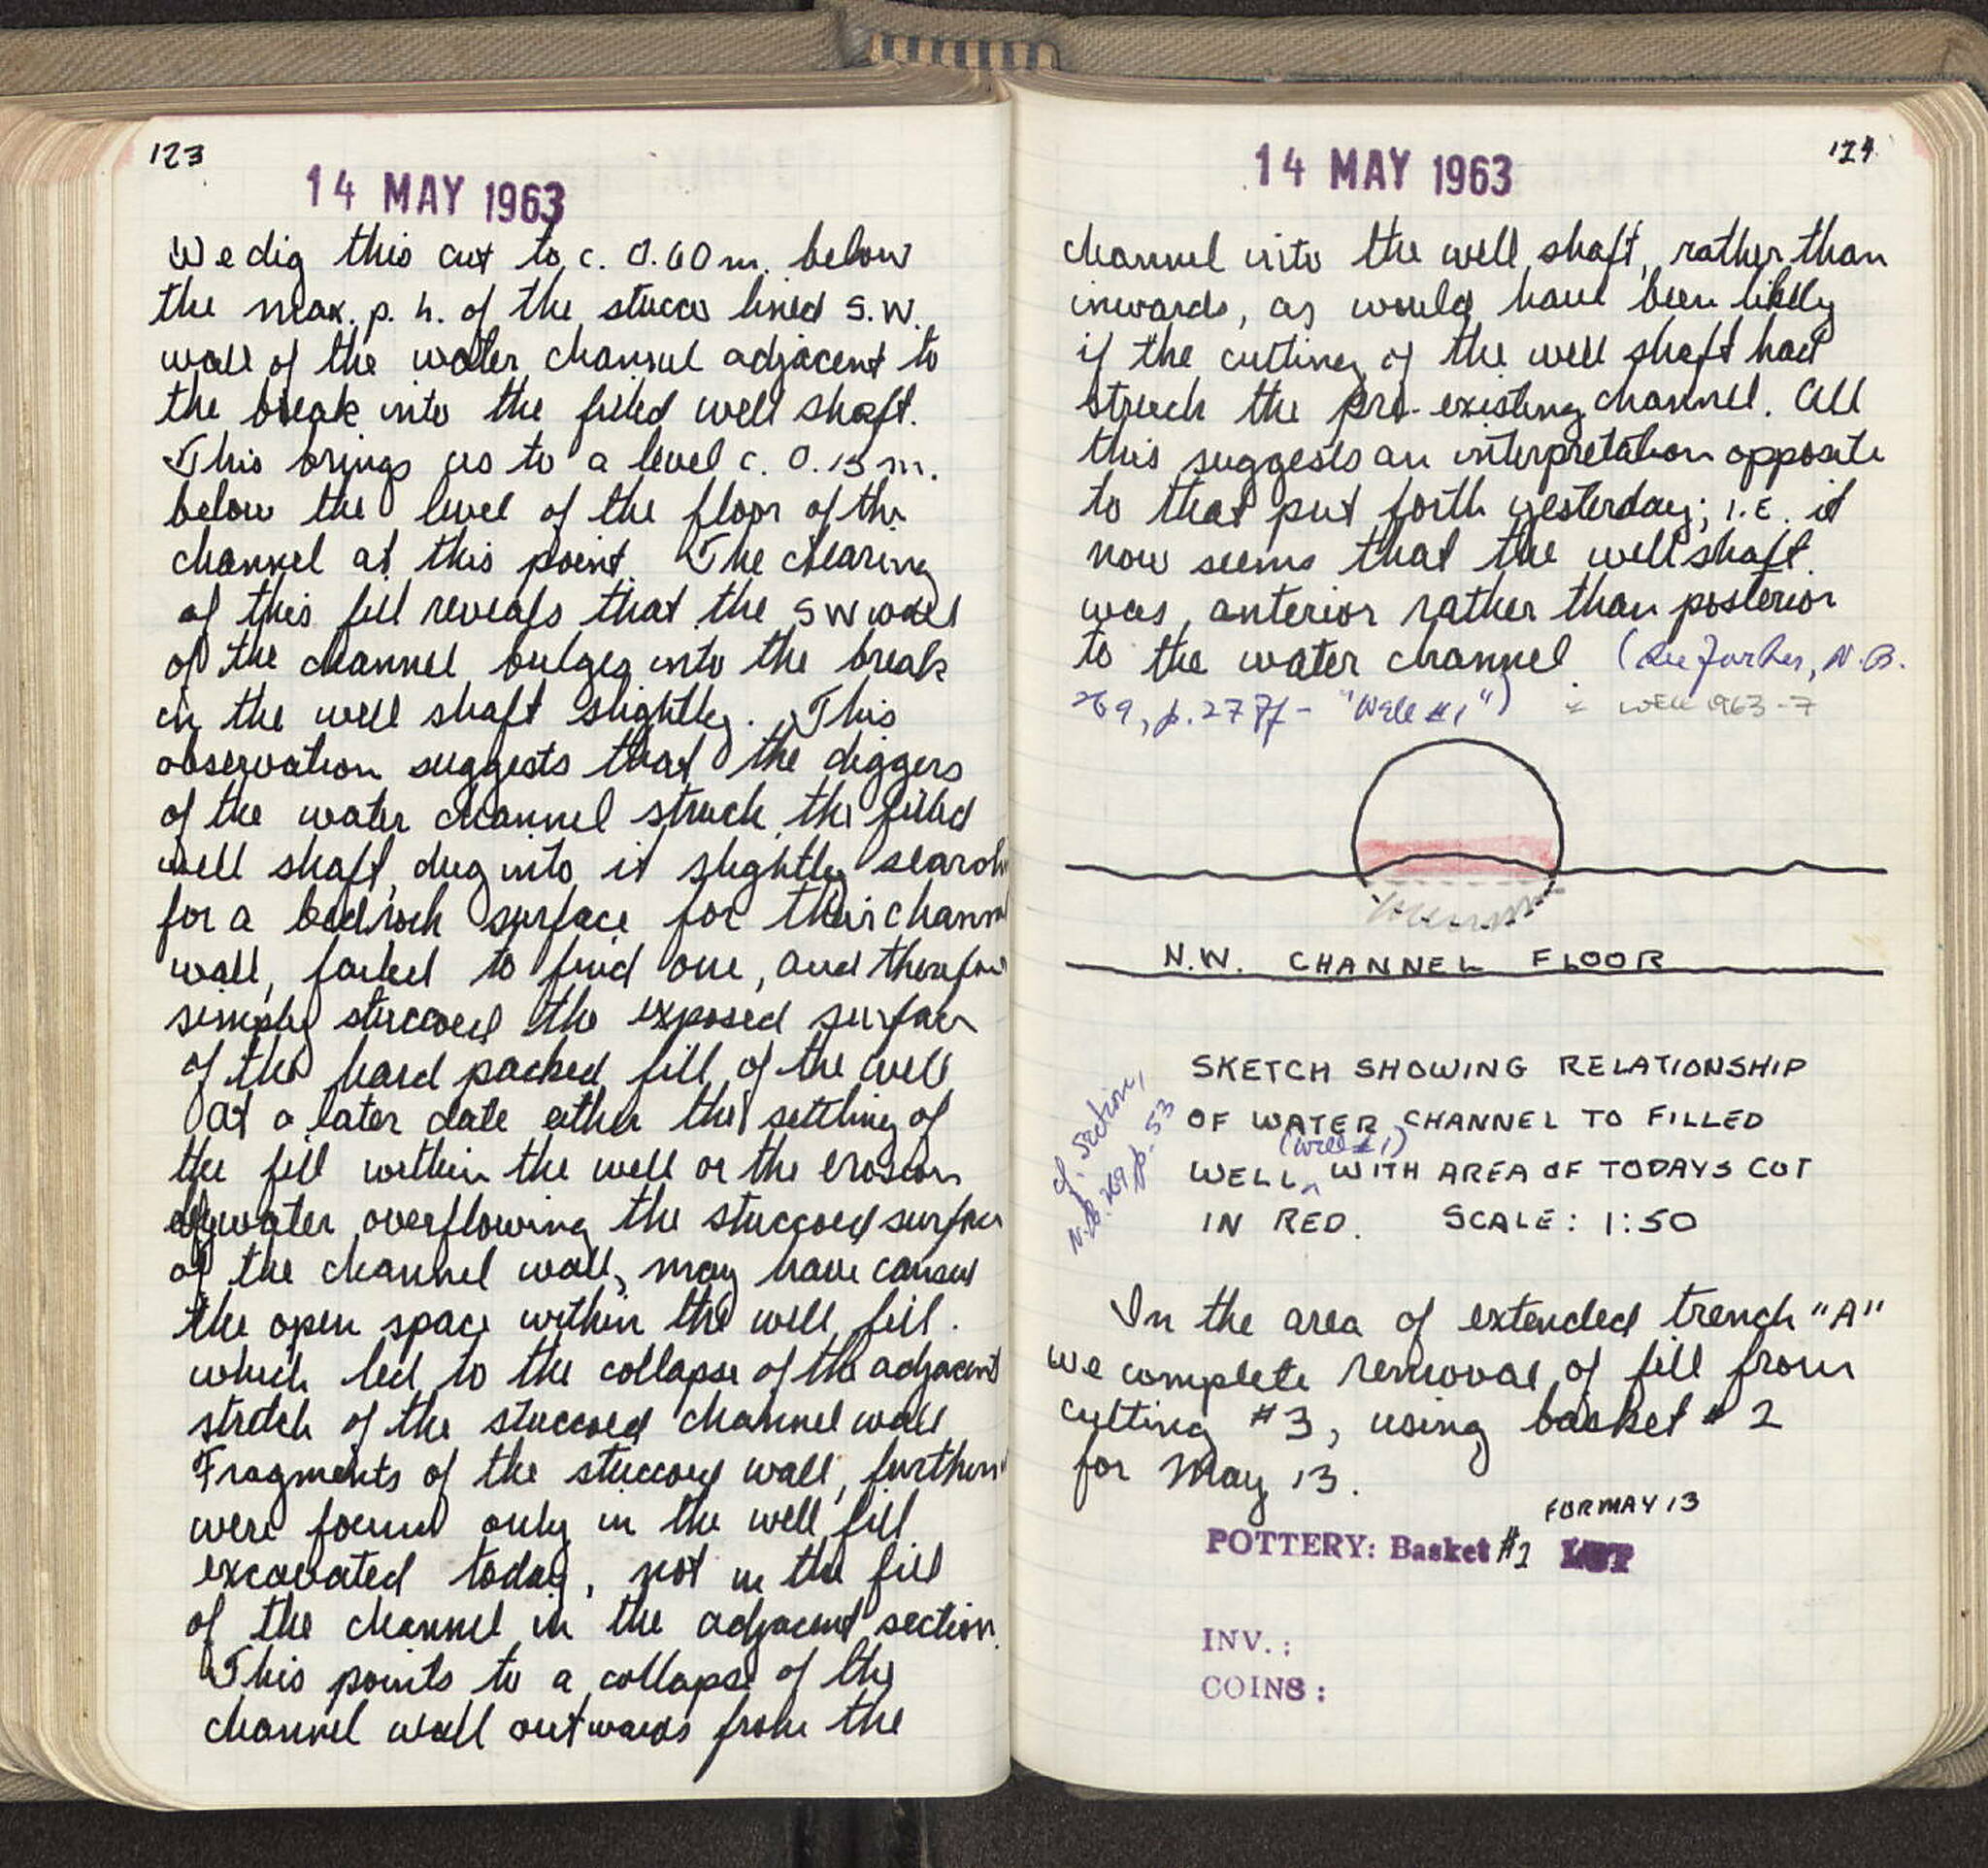 123
14 MAY 1963
We dig this cut to c. 0.60 m. below
the max. p. h. of the stucco lined S.W.
wall of the water channel adjacent to
the break into the filled well shaft.
This brings us to a level c. 0.15 m.
below the level of the floor of the
channel at this point. The clearing
of this fill reveals that the SW wall
of the channel bulges into the break
in the well shaft slightly. This
observation suggests that the diggers
of the water channel struck the filled
well shaft, dug into it slightly search
for a bedrock surface for their chann
wall, failed to find one, and therefor
simply stuccoed the exposed surface
of the hard packed fill of the well
At a later date either the settling of
the fill within the well or the erosion
by water overflowing the stuccoed surface
of the channel wall, may have caused
the open space within the well fill.
which led to the collapse of the adjacent
stretch of the stuccoed channel wall
Fragments of the stuccoed wall, further
were found only in the well fill
excavated today, not in the fill
of the channel in the adjacent section.
This points to a collapse of the
channel wall outwards from the
124
14 MAY 1963
channel into the well shaft, rather than
inwards, as would have been likely
if the cutting of the well shaft had
struck the pre-existing channel. All
this suggests an interpretation opposite
to that put forth yesterday; i.e. it
now seems that the well shaft
was anterior rather than posterior
to the water channel. (See further, N.B.
269, p. 27 ff - "Well #1") = WELL 1963-7
N.W. CHANNEL FLOOR
SKETCH SHOWING RELATIONSHIP
OF WATER CHANNEL TO FILLED
(Well #1)
WELL, WITH AREA OF TODAYS CUT
IN RED. SCALE: 1:50
cf. Section,
N.B. 269 p. 53
In the area of extended trench "A"
we complete removal of fill from
cutting #3, using basket #2
for May 13.
FOR MAY 13
POTTERY: Basket #2 LOT
INV.:
COINS: